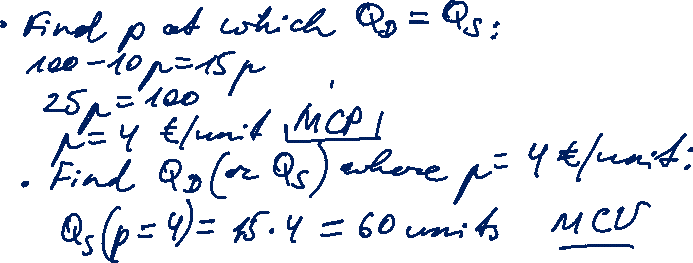 • Find p at which Q_D = Q_S:
100 - 10p = 15p
25p = 100
p = 4 €/unit MCP
• Find Q_D (or Q_S) where p = 4 €/unit:
Q_S(p = 4) = 15 · 4 = 60 units MCV